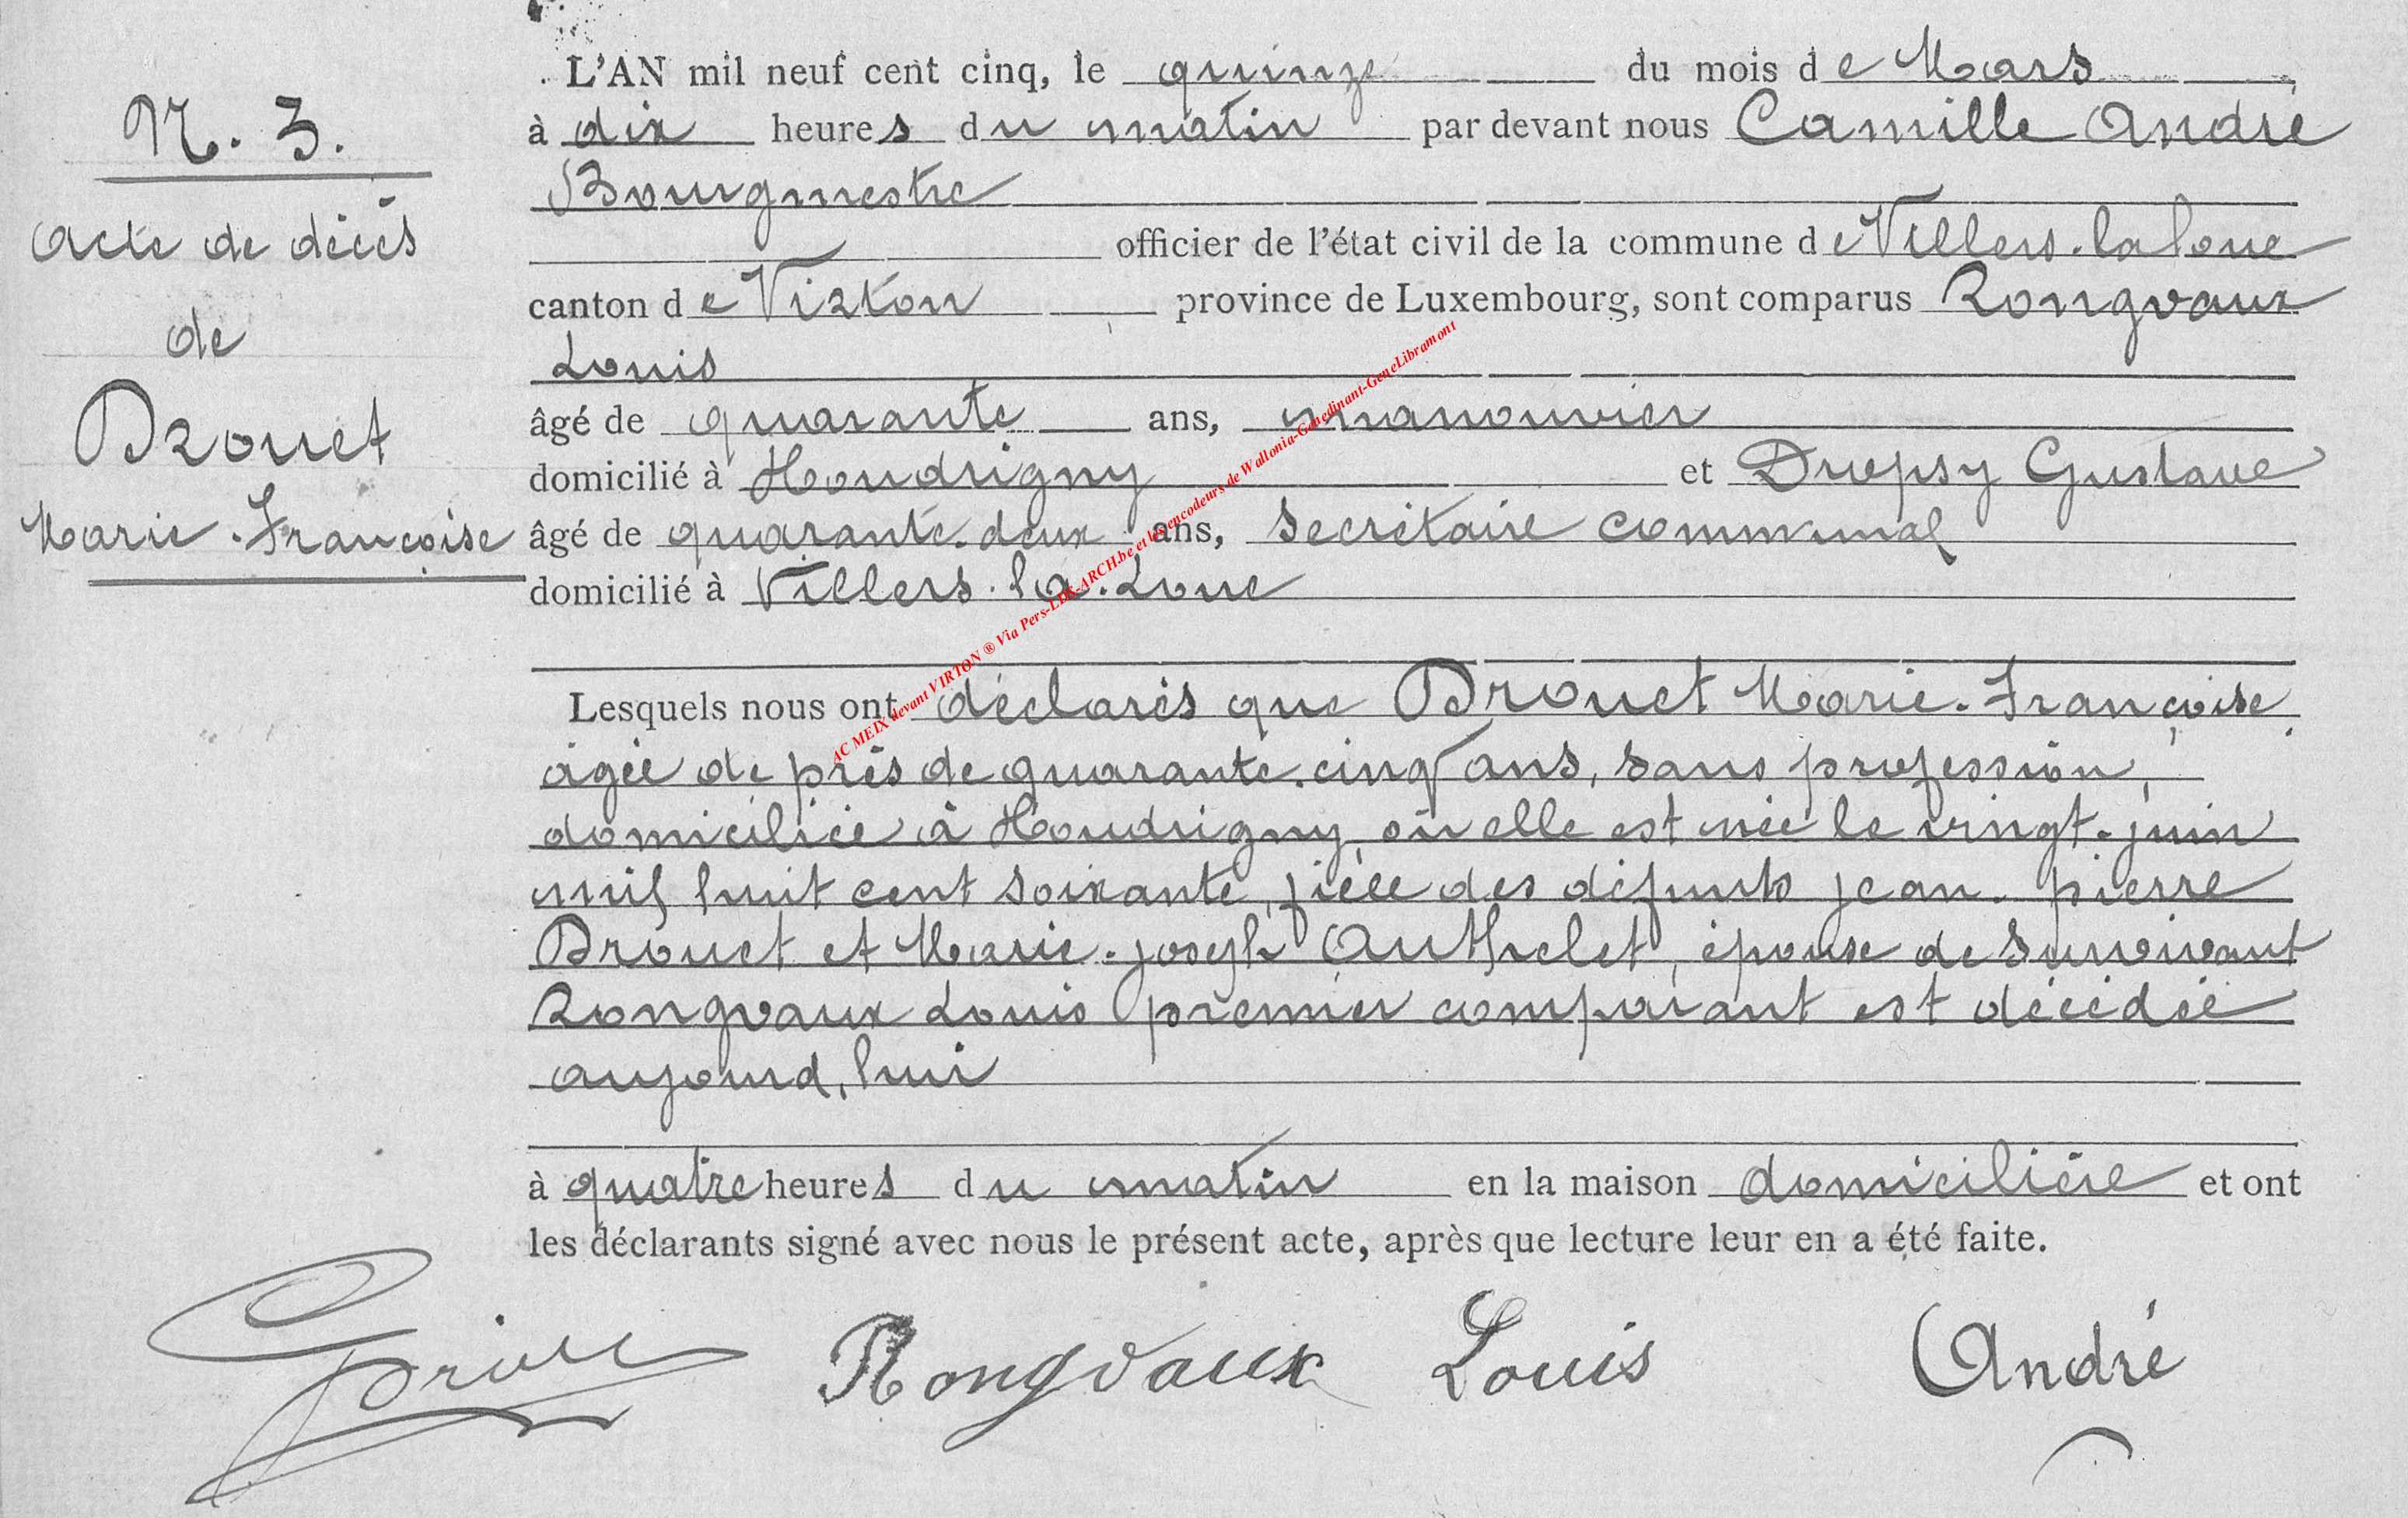 N. 3.
Acte de décès
de
Drouet
Marie-Françoise
L'AN mil neuf cent cinq, le quinze du mois de Mars
à dix heures du matin par devant nous Camille André
Bourgmestre
officier de l'état civil de la commune de Villers-la-Loue
canton de Virton province de Luxembourg, sont comparus Rongvaux
Louis
âgé de quarante ans, manouvier
domicilié à Houdrigny et Dropsy Gustave
âgé de quarante-deux ans, secrétaire communal
domicilié à Villers-la-Loue
Lesquels nous ont déclarés que Drouet Marie-Françoise,
âgée de près de quarante-cinq ans, sans profession,
domiciliée à Houdrigny, où elle est née le vingt-juin
mil huit cent soixante, fille des défunts Jean-Pierre
Drouet et Marie-Joseph Authelet, épouse de survivant
Rongvaux Louis premier comparant est décédée
aujourd'hui
à quatre heures du matin en la maison domicilière et ont
les déclarants signé avec nous le présent acte, après que lecture leur en a été faite.
Rongvaux Louis André
AC MEIX devant VIRTON ® Via Pers-LDK-ARCH.be et les encodeurs de Wallonia-Genedinant-GeneLibramont